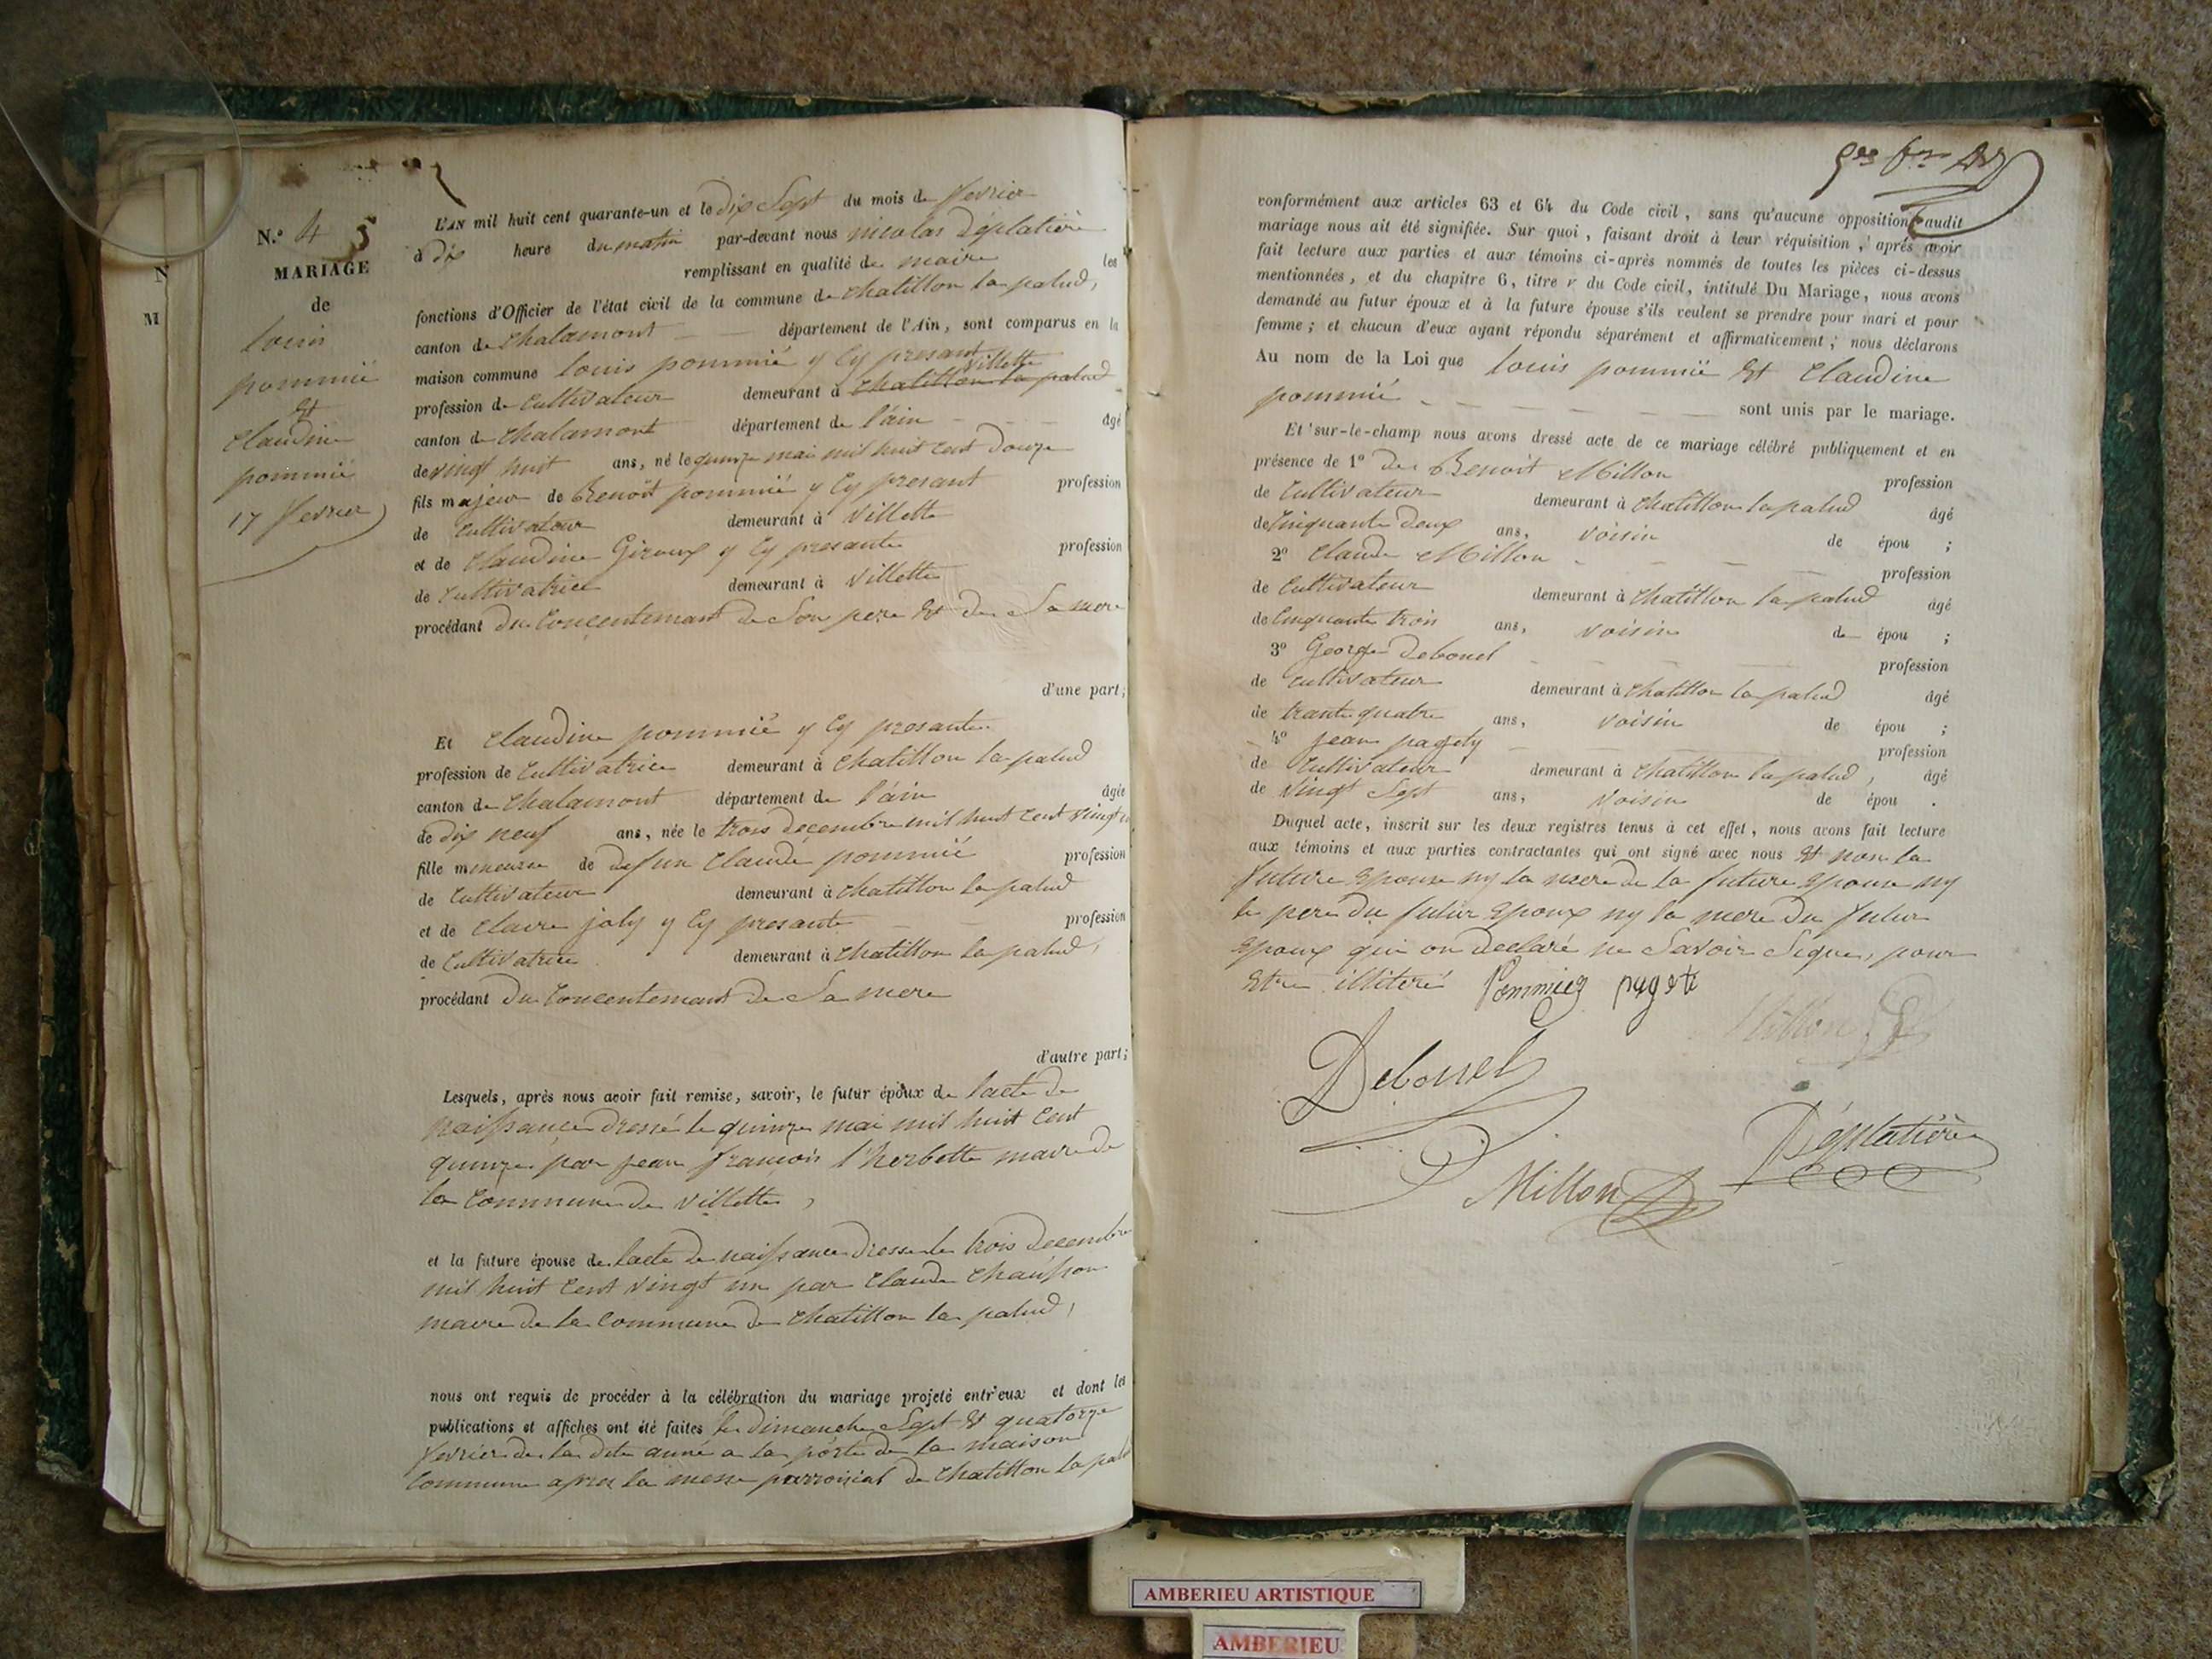 N.º 4 5
MARIAGE
de
louis
pommié
et
claudine
pommié
17 fevrier
N
M
L'AN mil huit cent quarante-un et le dix Sept du mois de fevrier
à dix heure du matin par-devant nous nicolas Déplatière
remplissant en qualité de maire les
fonctions d'Officier de l'état civil de la commune de chatillon la palud,
canton de chalamont département de l'Ain, sont comparus en la
maison commune louis pommié y Cy presant
villette
profession de Cultivateur demeurant à chatillon la palud
canton de chalamont département de l'ain âgé
de vingt huit ans, né le quinze mai mil huit cent douze
fils majeur de Benoît pommié y Cy presant profession
de Cultivateur demeurant à villette
et de Claudine Giroux y Cy presante profession
de Cultivatrice demeurant à villette
procédant du Concentemant de Son pere et de Sa mere
d'une part;
Et Claudine pommié y Cy presante
profession de Cultivatrice demeurant à chatillon la palud
canton de chalamont département de l'ain âgée
de dix neuf ans, née le trois decembre mil huit cent vingt un
fille mineure de defun Claude pommié profession
de Cultivateur demeurant à chatillon la palud
et de Claire joly y Cy presante profession
de Cultivatrice demeurant à chatillon la palud,
procédant du Concentemant de Sa mere
d'autre part;
Lesquels, après nous avoir fait remise, savoir, le futur époux de lacte de
naissance dressé le quinze mai mil huit Cent
quinze par jean francois l'herbette maire de
la Commune de villette,
et la future épouse de lacte de naissance dressé le trois decembre
mil huit Cent vingt un par Claude Chausson
maire de la Commune de chatillon la palud,
nous ont requis de procéder à la célébration du mariage projeté entr'eux et dont les
publications et affiches ont été faites les dimanche Sept et quatorze
fevrier de la dite année a la porte de la maison
Commune apres la messe parroisial de chatillon la palud
conformément aux articles 63 et 64 du Code civil, sans qu'aucune opposition audit
mariage nous ait été signifiée. Sur quoi, faisant droit à leur réquisition, après avoir
fait lecture aux parties et aux témoins ci-après nommés de toutes les pièces ci-dessus
mentionnées, et du chapitre 6, titre v du Code civil, intitulé Du Mariage, nous avons
demandé au futur époux et à la future épouse s'ils veulent se prendre pour mari et pour
femme; et chacun d'eux ayant répondu séparément et affirmativement; nous déclarons
Au nom de la Loi que louis pommié et Claudine
pommié sont unis par le mariage.
Et sur-le-champ nous avons dressé acte de ce mariage célébré publiquement et en
présence de 1º de Benoit Millon profession
de Cultivateur demeurant à chatillon la palud âgé
de Cinquante deux ans, voisin de épou ;
2º Claude Millon profession
de Cultivateur demeurant à chatillon la palud âgé
de Cinquante trois ans, voisin de épou ;
3º George Debonel profession
de Cultivateur demeurant à chatillon la palud âgé
de trante quatre ans, voisin de épou ;
4º jean pagety profession
de Cultivateur demeurant à chatillon la palud, âgé
de vingt Sept ans, voisin de épou .
Duquel acte, inscrit sur les deux registres tenus à cet effet, nous avons fait lecture
aux témoins et aux parties contractantes qui ont signé avec nous et non la
future epouse ny la mere de la future epouse ny
le pere du futur epoux ny la mere du futur
epoux qui on declaré ne Savoir Signer, pour
etre illiteré Pommiez
Debonel
Millon
Millon
Déplatière
AMBERIEU ARTISTIQUE
AMBERIEU